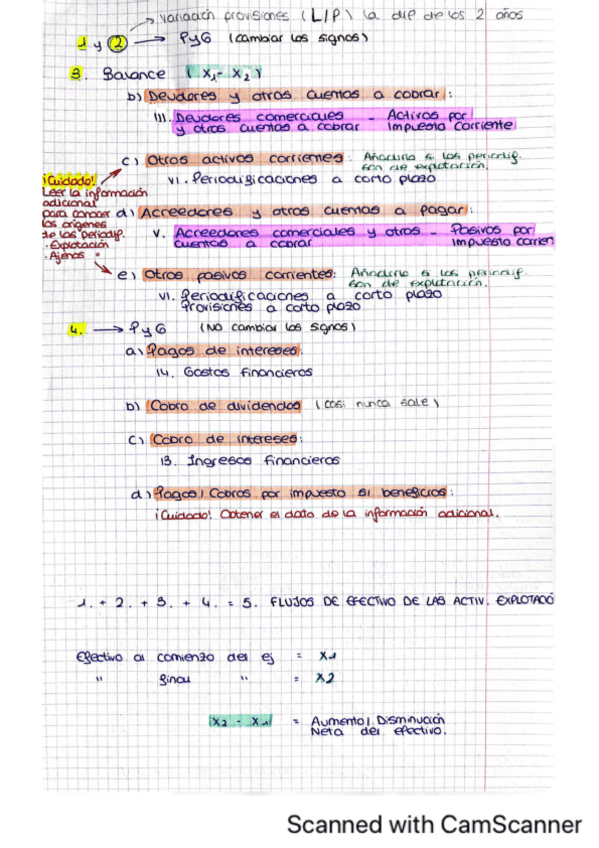 Variación provisiones (L/P) la dif de los 2 años
1 y 2 → PyG (cambiar los signos)
3. Balance (X1 - X2)
b) Deudores y otras cuentas a cobrar:
III. Deudores comerciales - Activos por
y otras cuentas a cobrar impuesto corriente
c) Otros activos corrientes: Añadirla si las periodif.
son de explotación.
VI. Periodificaciones a corto plazo
¡Cuidado!
Leer la información
adicional
para conocer
los orígenes
de las periodif.
· Explotación
· Ajenas "
d) Acreedores y otras cuentas a pagar:
V. Acreedores comerciales y otros - Pasivos por
cuentas a cobrar impuesto corrien
e) Otros pasivos corrientes: Añadirla si las periodif.
son de explotación.
VI. Periodificaciones a corto plazo
Provisiones a corto plazo
4. → PyG (NO cambiar los signos)
a) Pagos de intereses:
14. Gastos financieros
b) Cobro de dividendos (casi nunca sale)
c) Cobro de intereses:
13. Ingresos financieros
d) Pagos/Cobros por impuesto s/ beneficios:
¡Cuidado! Obtener el dato de la información adicional.
1. + 2. + 3. + 4. = 5. FLUJOS DE EFECTIVO DE LAS ACTIV. EXPLOTACIÓ
Efectivo al comienzo del ej = X1
" final " = X2
X2 - X1 = Aumento/Disminución
Neta del efectivo.
Scanned with CamScanner